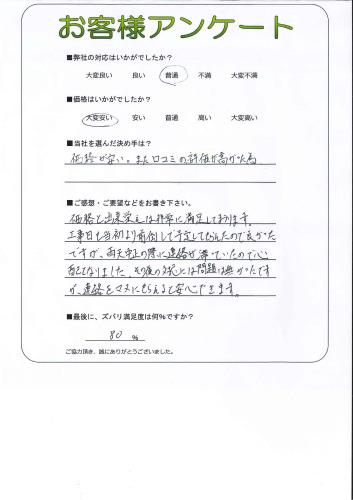 お客様アンケート
■弊社の対応はいかがでしたか？
大変良い 良い 普通 不満 大変不満
■価格はいかがでしたか？
大変安い 安い 普通 高い 大変高い
■当社を選んだ決め手は？
価格が安い。また口コミの評価が高かった為
■ご感想・ご要望などをお書き下さい。
価格と出来栄えは非常に満足しております。
工事日も当初より前倒しで予定してもらえたので良かった
ですが、雨天中止の際に連絡が滞っていたので心
配になりました。その後の対応には問題は無かったです
が、連絡をマメにもらえると安心できます。
■最後に、ズバリ満足度は何％ですか？
80 ％
ご協力頂き、誠にありがとうございました。